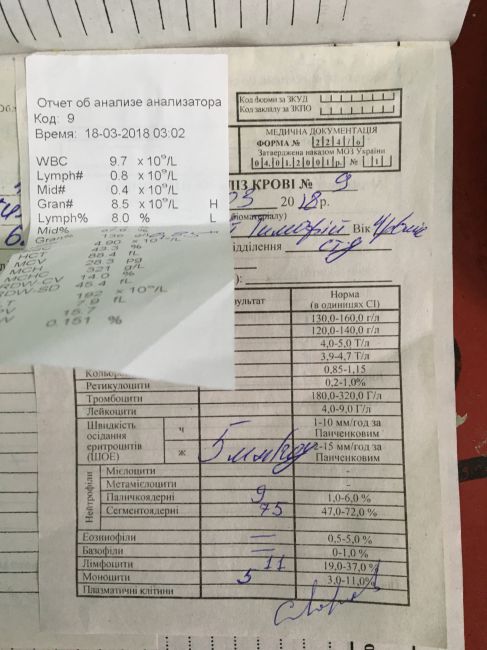 Отчет об анализе анализатора
Код: 9
Время: 18-03-2018 03:02
WBC 9.7 x 10⁹/L
Lymph# 0.8 x 10⁹/L
Mid# 0.4 x 10⁹/L
Gran# 8.5 x 10⁹/L H
Lymph% 8.0 % L
Mid%
Gran%
4.90 x 10¹²/L
HCT 43.3 %
MCV 88.4 fL
MCH 28.3 pg
MCHC 321 g/L
RDW-CV 14.0 %
RDW-SD 45.4 fL
192 x 10⁹/L
fL
15.7
0.151 %
Код форми за ЗКУД
Код закладу за ЗКПО
МЕДИЧНА ДОКУМЕНТАЦІЯ
ФОРМА № 224/о
Затверджена наказом МОЗ України
04.01.2001р. № 1
ІЗ КРОВІ № 9
2018 р.
біоматеріалу)
Тимофій Вік
відділення
Норма
(в одиницях СІ)
130,0-160,0 г/л
120,0-140,0 г/л
4,0-5,0 Т/л
3,9-4,7 Т/л
0,85-1,15
Ретикулоцити 0,2-1,0%
Тромбоцити 180,0-320,0 Г/л
Лейкоцити 4,0-9,0 Г/л
Швидкість осідання еритроцитів (ШОЕ) ч 1-10 мм/год за Панченковим
ж 5 мм/год 2-15 мм/год за Панченковим
Нейтрофіли
Мієлоцити -
Метамієлоцити -
Паличкоядерні 9 1,0-6,0 %
Сегментоядерні 75 47,0-72,0 %
Еозинофіли — 0,5-5,0 %
Базофіли — 0-1,0 %
Лімфоцити 11 19,0-37,0 %
Моноцити 5 3,0-11,0%
Плазматичні клітини -